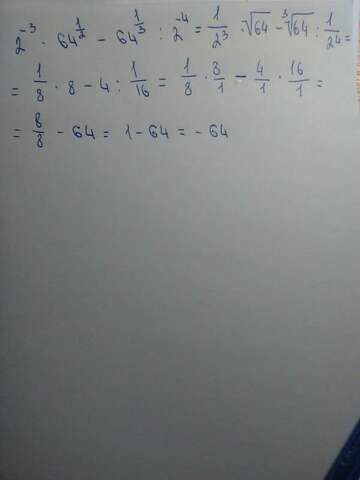 2⁻³ · 64^(1/2) − 64^(1/3) : 2⁻⁴ = 1/2³ · √64 − ³√64 : 1/2⁴ =
= 1/8 · 8 − 4 : 1/16 = 1/8 · 8/1 − 4/1 · 16/1 =
= 8/8 − 64 = 1 − 64 = − 64